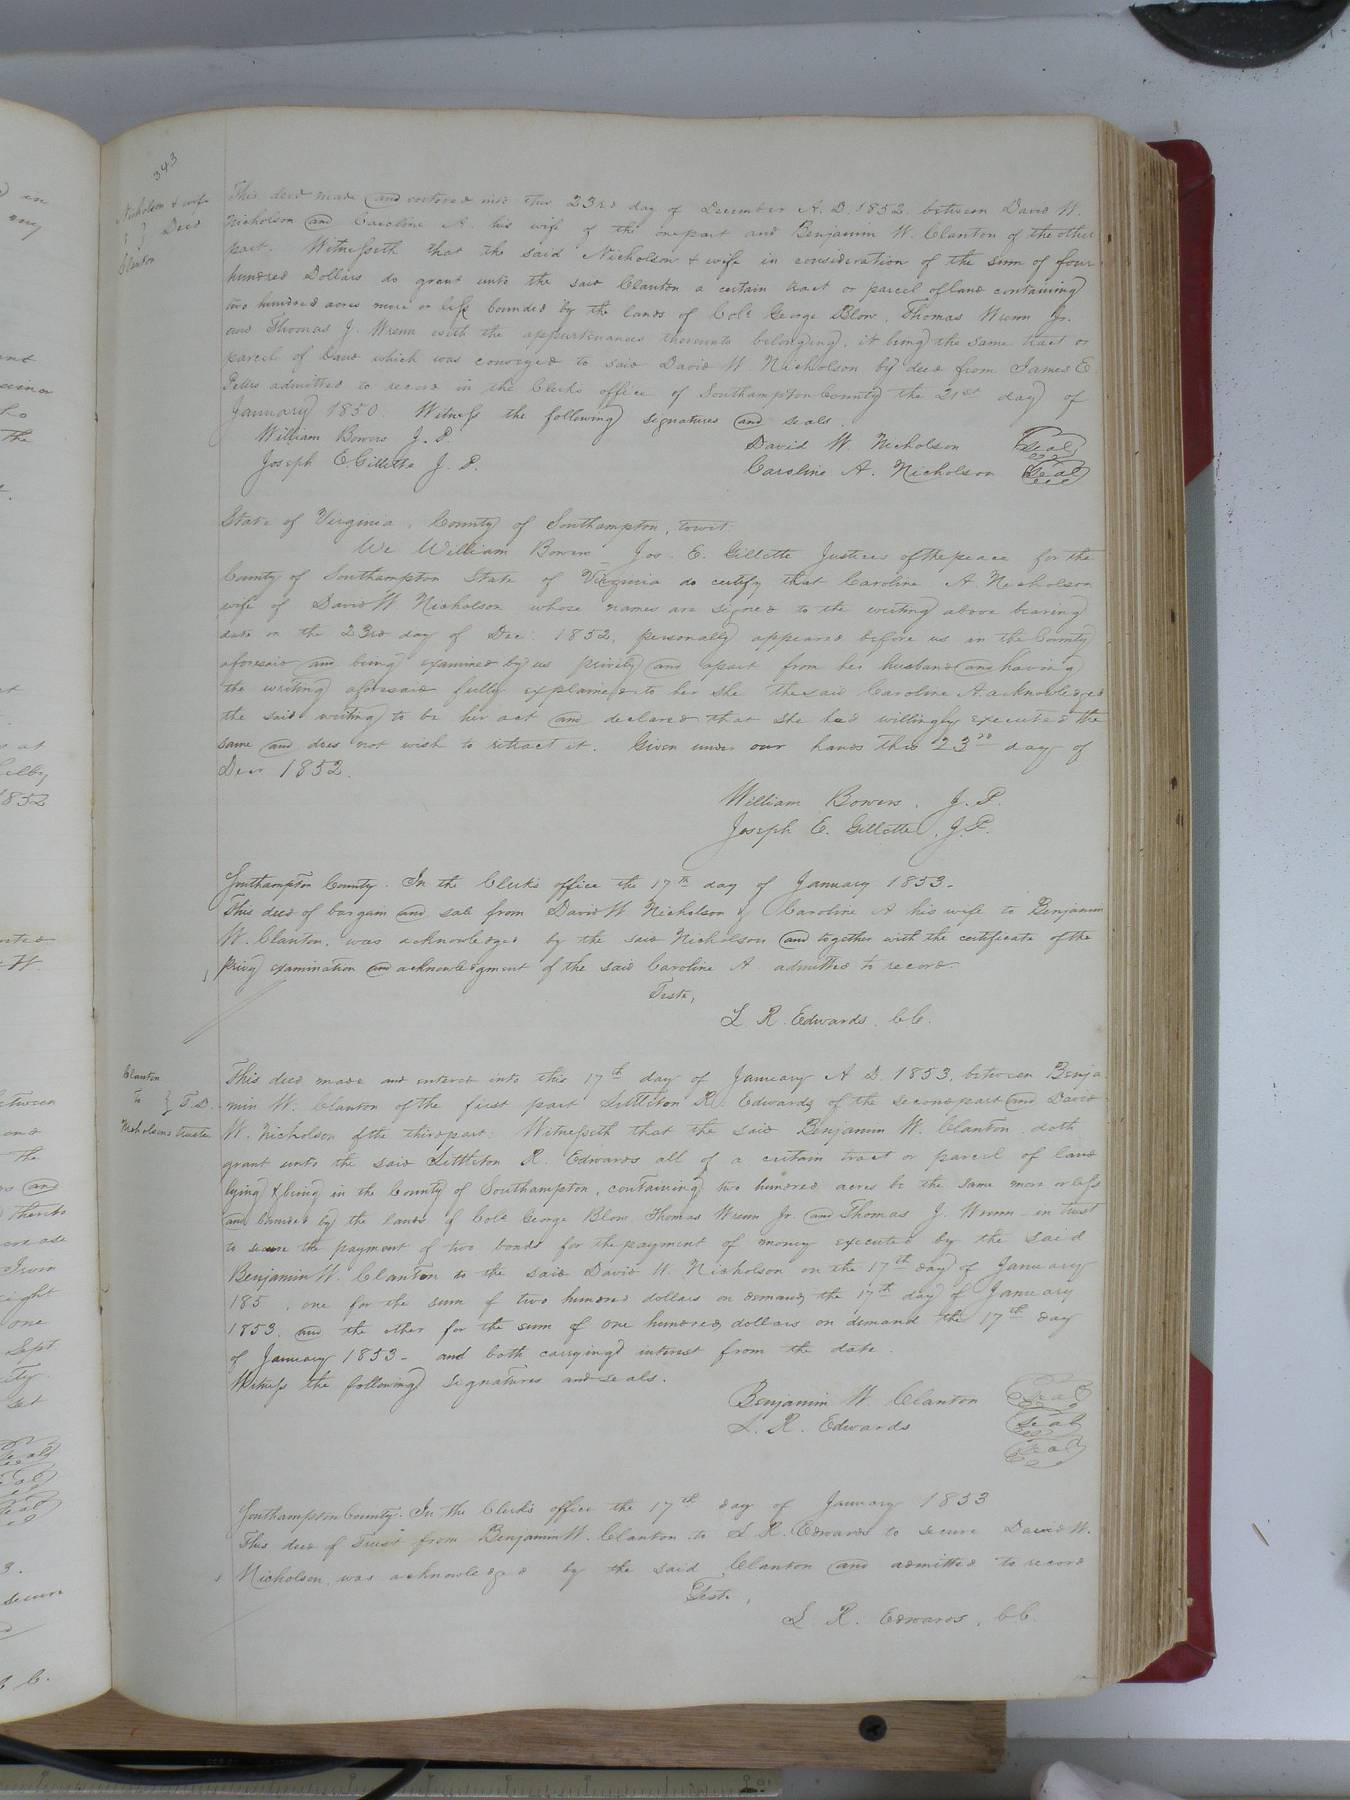 343
Nicholson & wife
Deed
Clanton
This deed made and entered into this 23rd day of December A. D. 1852. between David W.
Nicholson and Caroline A. his wife of the one part and Benjamin W. Clanton of the other
part. Witnesseth that the said Nicholson & wife in consideration of the sum of four
hundred Dollars do grant unto the said Clanton a certain tract or parcel of land containing
two hundred acres more or less bounded by the lands of Colo George Blow, Thomas Wrenn Jr.
and Thomas J. Wrenn with the appurtenances thereunto belonging, it being the same tract or
parcel of Land which was conveyed to said David W. Nicholson by deed from James E.
Peters admitted to record in the Clerks office of Southampton County the 21st day of
January 1850. Witness the following signatures and seals.
William Bowers J. P.
David W. Nicholson Seal
Joseph E. Gillette J. P.
Caroline A. Nicholson Seal
State of Virginia, County of Southampton, towit.
We William Bowers Jos. E. Gillette Justices of the peace for the
County of Southampton State of Virginia do certify that Caroline A. Nicholson
wife of David W Nicholson whose names are signed to the writing above bearing
date on the 23rd day of Dec: 1852, personally appeared before us in the County
aforesaid and being examined by us privily and apart from her husband and having
the writing aforesaid fully explained to her she the said Caroline A. acknowledged
the said writing to be her act and declared that she had willingly executed the
same and does not wish to retract it. Given under our hands this 23rd day of
Decr 1852.
William Bowers, J. P.
Joseph E. Gillette, J. P.
Southampton County. In the Clerk's office the 17th day of January 1853-
This deed of bargain and sale from David W Nicholson & Caroline A his wife to Benjamin
W. Clanton, was acknowledged by the said Nicholson and together with the certificate of the
privy examination and acknowledgment of the said Caroline A admitted to record.
Teste,
L R. Edwards, CC.
Clanton
to } T.D.
Nicholson's trustee
This deed made and entered into this 17th day of January A D. 1853, between Benja
min W. Clanton of the first part Littleton R. Edwards of the second part and David
W. Nicholson of the third part: Witnesseth that the said Benjamin W. Clanton doth
grant unto the said Littleton R. Edwards all of a certain tract or parcel of land
lying & being in the County of Southampton, containing two hundred acres be the same more or less
and bounded by the lands of Colo George Blow Thomas Wrenn Jr. and Thomas J. Wrenn - in trust
to secure the payment of two bonds for the payment of money executed by the said
Benjamin W. Clanton to the said David W. Nicholson on the 17th day of January
185 , one for the sum of two hundred dollars on demand the 17th day of January
1853, and the other for the sum of one hundred dollars on demand the 17th day
of January 1853- and both carrying interest from the date.
Witness the following signatures and seals.
Benjamin W. Clanton Seal
L. R. Edwards Seal
Seal
Southampton County. In the Clerk's office the 17th day of January 1853
This deed of Trust from Benjamin W. Clanton to L R. Edwards to secure David W.
Nicholson, was acknowledged by the said Clanton and admitted to record
Teste,
L. R. Edwards, CC.